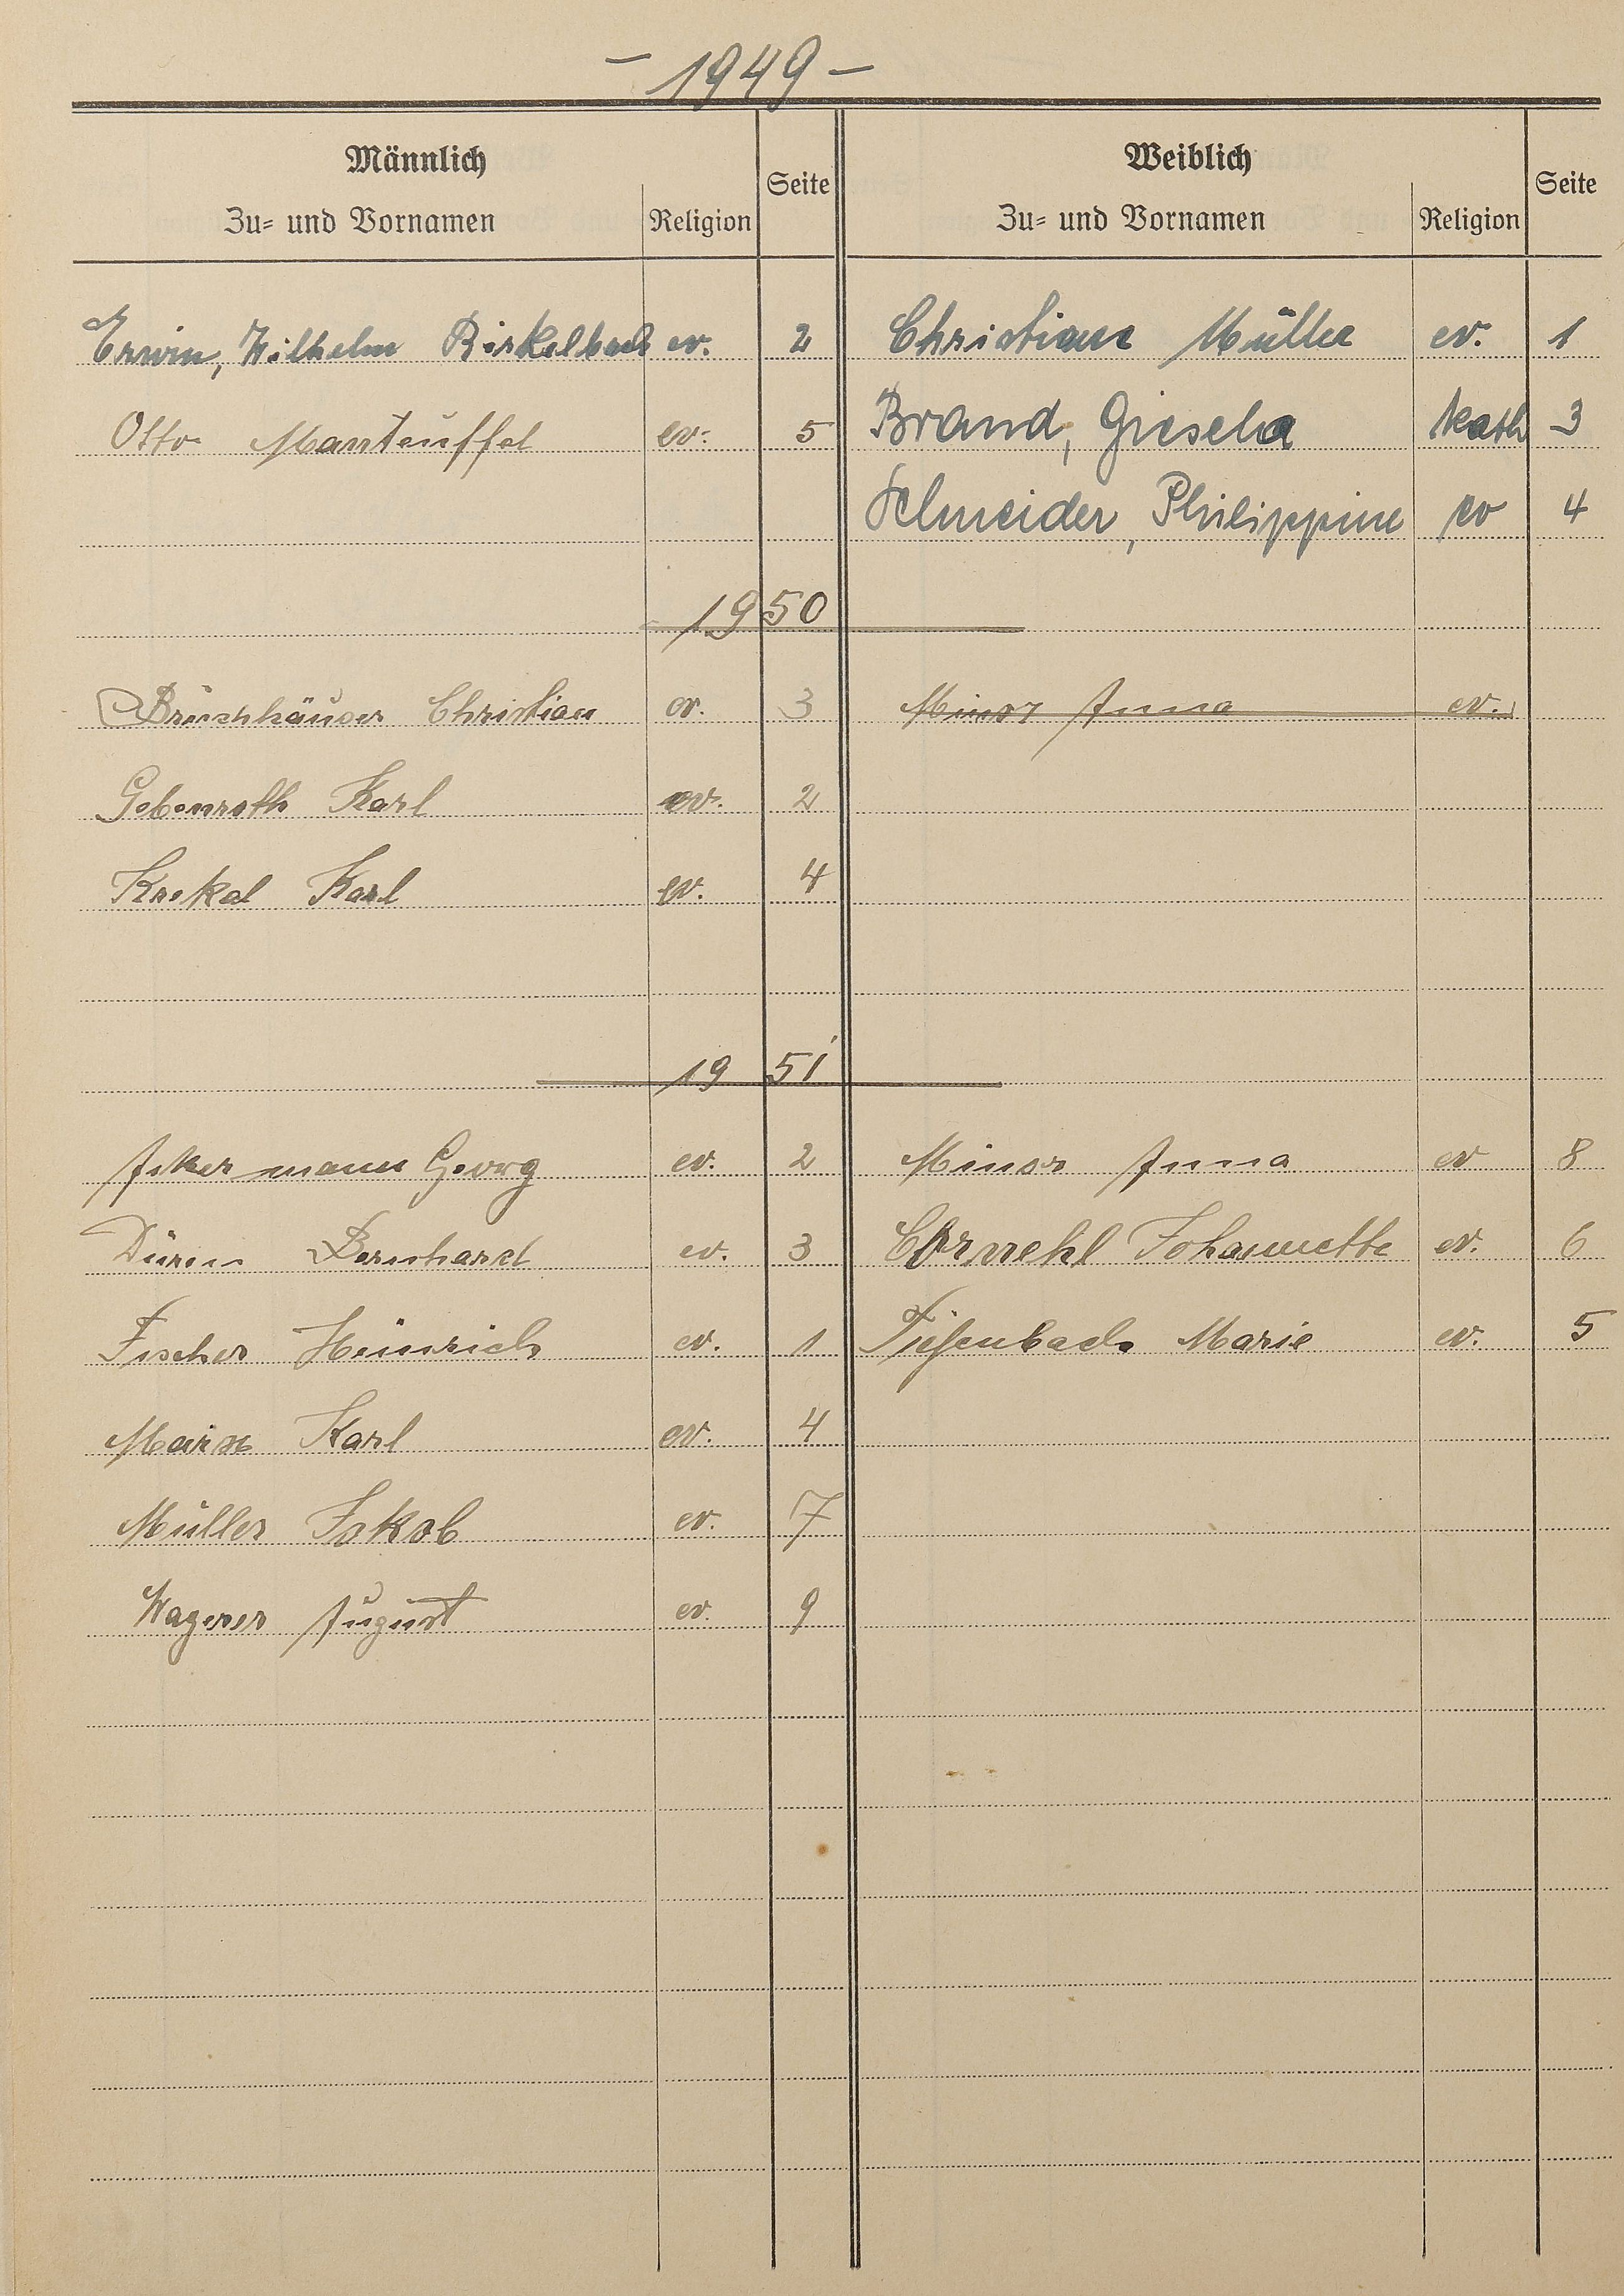 - 1949 -
Männlich Seite Weiblich Seite
Zu- und Vornamen Religion Zu- und Vornamen Religion
Erwin, Wilhelm Birkelbach ev. 2 Christiane Müller ev. 1
Otto Manteuffel ev. 5 Brand, Giesela kath 3
Schneider, Philippine ev 4
1950
Brüschhäuser Christian ev. 3 Minor Anna ev.
Gebenroth Karl ev. 2
Krekel Karl ev. 4
1951
Ackermann Georg ev. 2 Minor Anna ev 8
Düren Bernhard ev. 3 Johannette ev. 6
Fischer Heinrich ev. 1 Tiefenbach Marie ev. 5
Marx Karl ev. 4
Müller Jakob ev. 7
Wagner August ev. 9